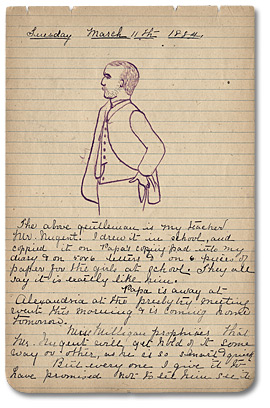 Tuesday March 11th 1884.
The above gentleman is my teacher
Mr. Nugent. I drew it in school, and
copied it on Papa's copying pad into my
diary & on 5 or 6 letters & on 6 pieces of
paper for the girls at school. They all
say it is really like him.
Papa is away at
Alexandria at the presbytery meeting
went this morning & is coming home
tomorrow.
Mrs. Milligan prophsies that
Mr. Nugent will get hold of it some
way or other, as he is so
But every one I give it to
have promised not to let him see it